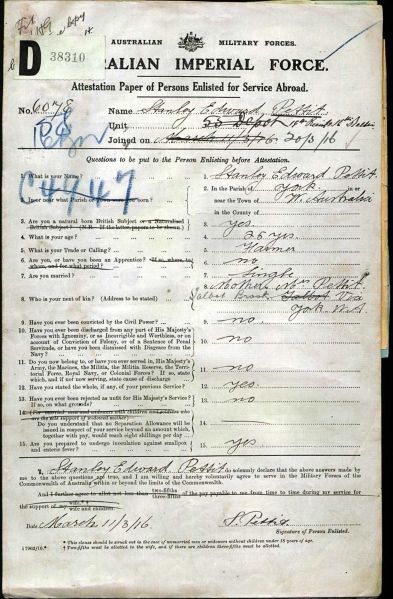 D
38310
AUSTRALIAN MILITARY FORCES.
AUSTRALIAN IMPERIAL FORCE.
Attestation Paper of Persons Enlisted for Service Abroad.
No. 6078 Name Stanley Edward Pettit
Unit 55 Depot
Joined on March 11/3/16 20/3/16
Questions to be put to the Person Enlisting before Attestation.
1. What is your Name? 1. Stanley Edward Pettit
2. In or near what Parish or Town were you born? 2. In the Parish of York in or
near the Town of W. Australia
in the County of
3. Are you a natural born British Subject or a Naturalised British Subject? (N.B.—If the latter, papers to be shown) 3. Yes
4. What is your age? 4. 26 yrs.
5. What is your Trade or Calling? 5. Farmer
6. Are you, or have you been an Apprentice? If so, where, to whom, and for what period? 6. no
7. Are you married? 7. Single
8. Who is your next of kin? (Address to be stated) 8. Mother Mrs Pettit
Talbot Brook Talbot Via
York W.A
9. Have you ever been convicted by the Civil Power? 9. no
10. Have you ever been discharged from any part of His Majesty's Forces with Ignominy, or as Incorrigible and Worthless, or on account of Conviction of Felony, or of a Sentence of Penal Servitude, or have you been dismissed with Disgrace from the Navy? 10. no.
11. Do you now belong to, or have you ever served in, His Majesty's Army, the Marines, the Militia, the Militia Reserve, the Territorial Force, Royal Navy, or Colonial Forces? If so, state which, and if not now serving, state cause of discharge 11. no
12. Have you stated the whole, if any, of your previous Service? 12. yes.
13. Have you ever been rejected as unfit for His Majesty's Service? If so, on what grounds? 13. no
14. (For married men and widowers with children and soldiers who are the sole support of widowed mother)—
Do you understand that no Separation Allowance will be issued in respect of your service beyond an amount which, together with pay, would reach eight shillings per day? 14.
15. Are you prepared to undergo inoculation against smallpox and enteric fever? 15. yes
I, Stanley Edward Pettit do solemnly declare that the above answers made by me to the above questions are true, and I am willing and hereby voluntarily agree to serve in the Military Forces of the Commonwealth of Australia within or beyond the limits of the Commonwealth.
And I further agree to allot not less than two-fifths three-fifths of the pay payable to me from time to time during my service for the support of my wife * † wife and children.
Date March 11/3/16 S. Pettit
Signature of Person Enlisted.
* This clause should be struck out in the case of unmarried men or widowers without children under 18 years of age.
† Two-fifths must be allotted to the wife, and if there are children three-fifths must be allotted.